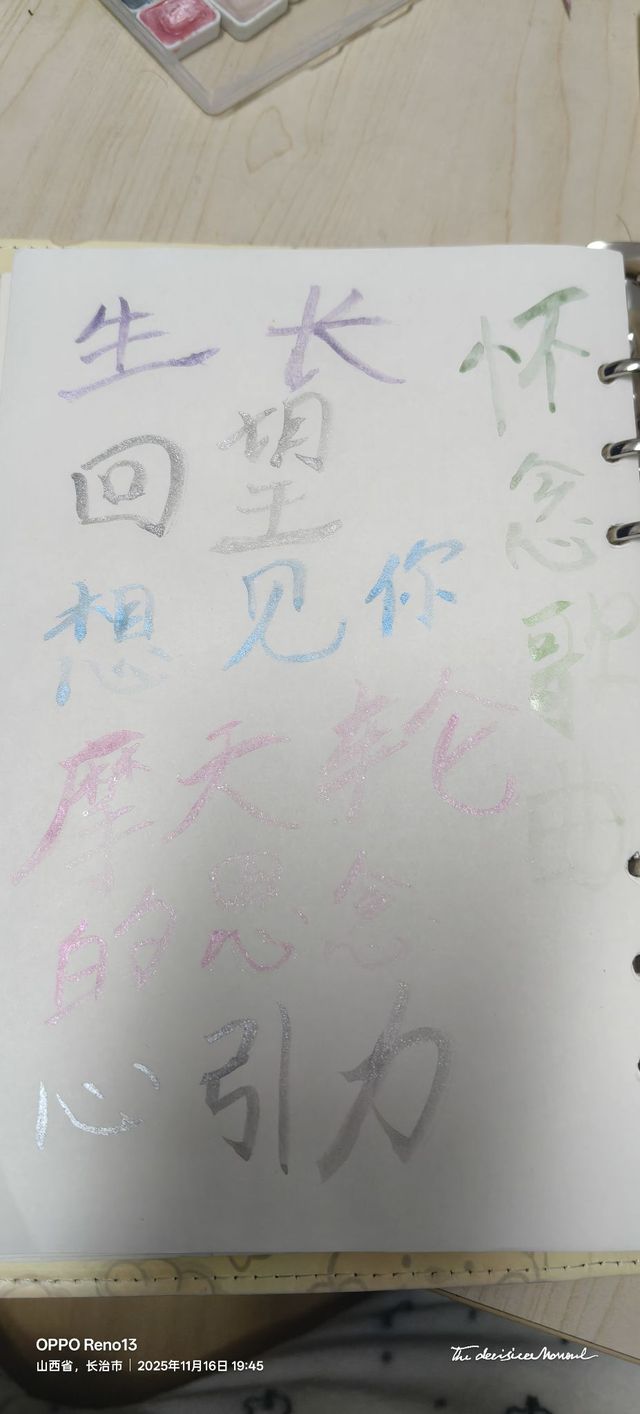 生长
回望
想见你
摩天轮
的思念
心引力
怀念
OPPO Reno13
山西省，长治市 | 2025年11月16日 19:45
The decisive Moment